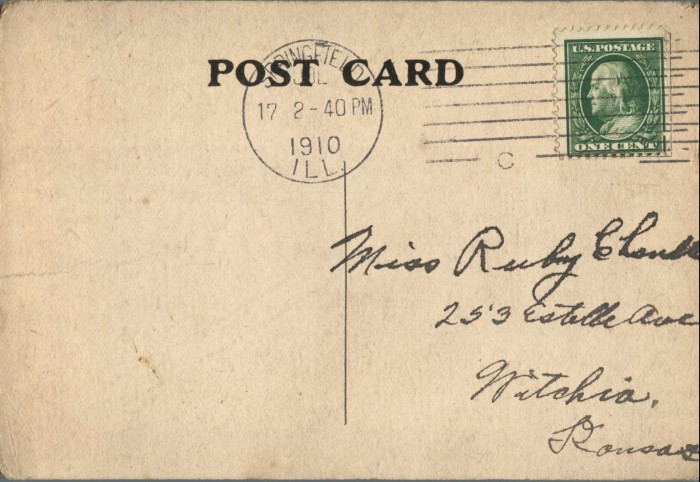 POST CARD
SPRINGFIELD
JUL
17 2-40 PM
1910
ILL.
C
U.S. POSTAGE
ONE CENT
Miss Ruby
253 Estelle Ave
Witchia,
Kansas